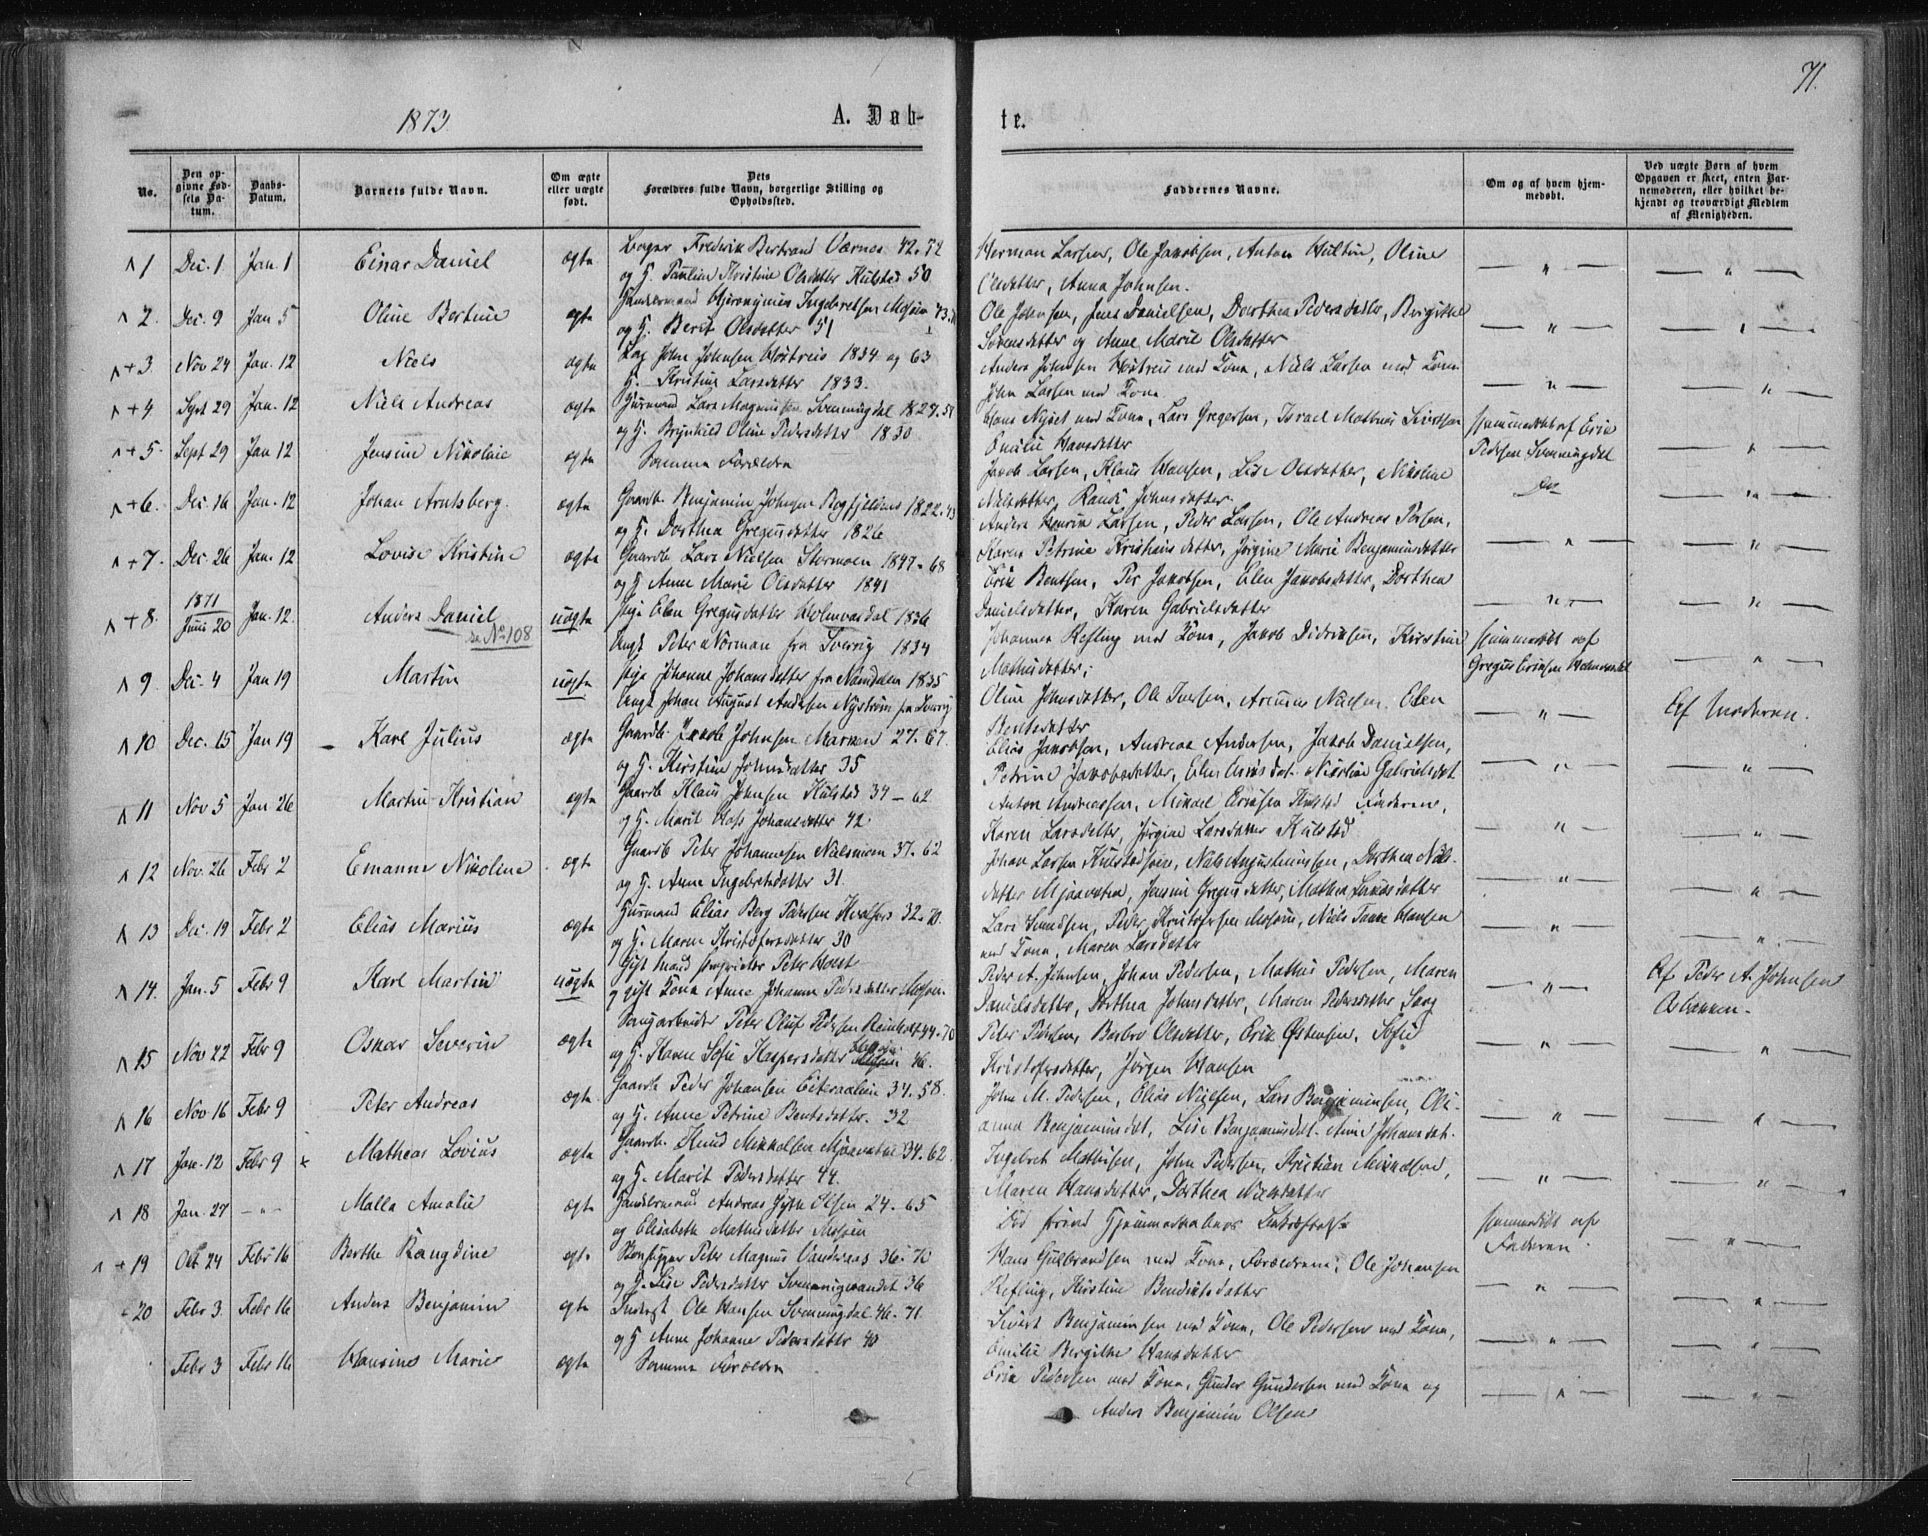 71.
1873.
A. Døb-
te.
No.
Den op-
givne Fød-
sels Da-
tum.
Daabs-
Datum.
Barnets fulde Navn.
Om ægte
eller uægte
født.
Dets
Forældres fulde Navn, borgerlige Stilling og
Opholdssted.
Faddernes Navne.
Om og af hvem hjem-
medøbt.
Ved uægte Børn af hvem
Opgaven er skeet, enten Bar-
nemoderen, eller hvilket be-
kjendt og troværdigt Medlem
af Menigheden.
1 Dec. 1 Jan. 1 Einar Daniel ægte Bager Frederik Bertrand Værnes 42-72
og H. Pauline Kristine Olsdatter Kulstad 50
Herman Larsen, Ole Jakobsen, Anton Hultin, Oline
Olsdatter, Anna Johnsen.
2. Dec. 9 Jan 5 Oline Bertine ægte Handelsmand Hieronymus Ingebretsen Mosjøen 43
og H. Berit Olsdatter 51
Ole Johnsen, Jens Danielsen, Dorthea Pedersdatter, Birgithe
Sørensdatter og Anne Marie Olsdatter
+3. Nov 24 Jan. 12 Niels ægte John Johnsen 1834 og 63
H. Kristine Larsdatter 1833.
Anders Johnsen med Kone, Niels Larsen med Kone
John Larsen med Kone
+4 Sept 29 Jan. 12 Niels Andreas ægte Huusmand Lars Magnussen Svenningdal 1827.51
og H. Brynhild Oline Pedersdatter 1830
Hans med Kone, Lars Gregersen, Israel Mathias Sivertsen
Emilie Hansdatter
hjemmedøbt af Erik
Pedersen Svenningdal
+5. Sept 29 Jan 12 Jensine Nikolaie ægte Samme Forældre
Jakob Larsen, Klaus Hansen, Lise Olsdatter, Nikoline
Nilsdatter, Randi Johnsdatter
do
+6. Dec. 16 Jan. 12 Johan Arntsberg. ægte Gaardb. Benjamin Johnsen 1822.43
og H. Dorthea Gregusdatter 1826
Anders Henrik Larsen, Peder Larsen, Ole Andreas
Karen Petrine Kristiansdatter, Jørgine Marie Benjaminsdatter
+7. Dec. 26 Jan. 12 Lovise Kristine ægte Gaardb Lars Nielsen Stormoen 1847-68
og H. Anne Marie Olsdatter 1841
Erik Bentsen, Per Jakobsen, Elen Jakobsdatter, Dorthea
Danielsdatter, Karen Gabrielsdatter
+8. 1871
Juni 20 Jan. 12. Anders Daniel
se No 108
uægte Pige Elen Gregusdatter Holmvasdal 1836
Ungk Peter Norman fra Sverrig 1834
Johannes Resling med Kone, Jakob Didriksen, Kirstine
Mathisdatter;
hjemmedøbt af
Gregus Eriksen Holmvasdal
9 Dec. 4 Jan 19 Martin uægte Pige Johanne Johansdatter fra Namdalen 1835
Ungk Johan August Andersen Nystrøm fra Sverig
Oline Johnsdatter, Ole Iversen, Nielsen. Elen
Bentsdatter
Af Moderen.
10 Dec. 15 Jan 19 Karl Julius ægte Gaardb Jakob Johnsen Marken 27-67.
og H. Kirstine Johnsdatter 35
Elias Jakobsen, Andreas Andersen, Jakob Danielsen,
Petrine Jakobsdatter, Elen Nikoline Gabrielsdat.
11 Nov 5 Jan 26 Martin Kristian ægte Gaardb Klaus Johnsen Kulstad 34-62
og H. Marit Johansdatter 42.
Anton Andreassen, Mikael Eriksen Kulstad Faderen,
Karen Larsdatter, Jørgine Larsdatter Kulstad
12 Nov. 26 Febr 2 Emanne Nikoline ægte Gaardb Peter Johannesen Nielsmoen 37-62
og H. Anne Ingebretsdatter 31.
Johan Larsen, Nils Augustinussen, Dorthea Nils-
datter Mjaavatn, Gregusdatter, Mathea datter
13 Dec. 19 Febr 2 Elias Marius ægte Huusmand Elias Berg Pedersen 32-70.
og H. Maren Kristofersdatter 30
Lars, Peder Kristofersen Mosjøen, Niels Hansen
med Kone, Maren Larsdatter
14. Jan. 5 Febr 9 Karl Martin uægte Gift Mand Peter Holst
og gift Kone Anne Johanna Pedersdatter Mosjøen.
Peder A. Johnsen, Johan Pedersen, Mathis Pedersen, Maren
Danielsdatter, Dorthea Johnsdatter, Maren Pedersdatter
Af Peder A. Johnsen
Osbakken.
15 Nov 22 Febr 9 Oskar Severin ægte Saugarbeider Peter Oluf Pedersen 44-70
og H. Karen Sofie Kaspersdatter 46.
Peter Pedersen, Berbro Olsdatter, Erik Østensen, Sofie
Kristofersdatter, Jørgen Hansen
16 Nov 16 Febr 9 Peter Andreas ægte Gaardb Peder Johansen Eiteraalien 34.58.
og H. Anne Petrine Bentsdatter. 32
John M. Pedersen, Elias Nielsen, Lars Benjaminsen, Oli-
anna Benjaminsdat, Lise Benjaminsdat. Anne Johansdat.
17 Jan. 12 Febr 9 x Matheas Lovius ægte Gaardb. Knud Mikkelsen Mjaavatn 34.62
og H. Marit Pedersdatter 44.
Ingebret Mathisen, John Pedersen, Kristian Mikkelsen,
Maren Hansdatter, Dorthea Nielsdatter
18 Jan. 27 -"- Malla Amalie ægte Handelsmand Andreas Olsen 24-65
og Elisabeth Mathisdatter Mosjøen
hjemmedøbt af
Faderen.
+19 Okt 24 Febr 16 Berthe Rangdine ægte Peter Magnus 36-70
og H. Lise Pedersdatter Svenningvandet 36
Hans Gulbrandsen med Kone, Forældrene, Ole Johansen
Refling, Kirstine Bendiktsdatter
20 Febr 3. Febr 16 Anders Benjamin ægte Inderst Ole Hansen Svenningdal 46.71.
og H. Anne Johanne Pedersdatter 43
Sivert Benjaminsen med Kone, Ole Pedersen med Kone,
Emilie Bergitte Hansdatter
Febr 3 Febr 16 Hansine Marie ægte Samme Forældre
Erik Pedersen med Kone, Gunder Gundersen med Kone og
Anders Benjamin Olsen